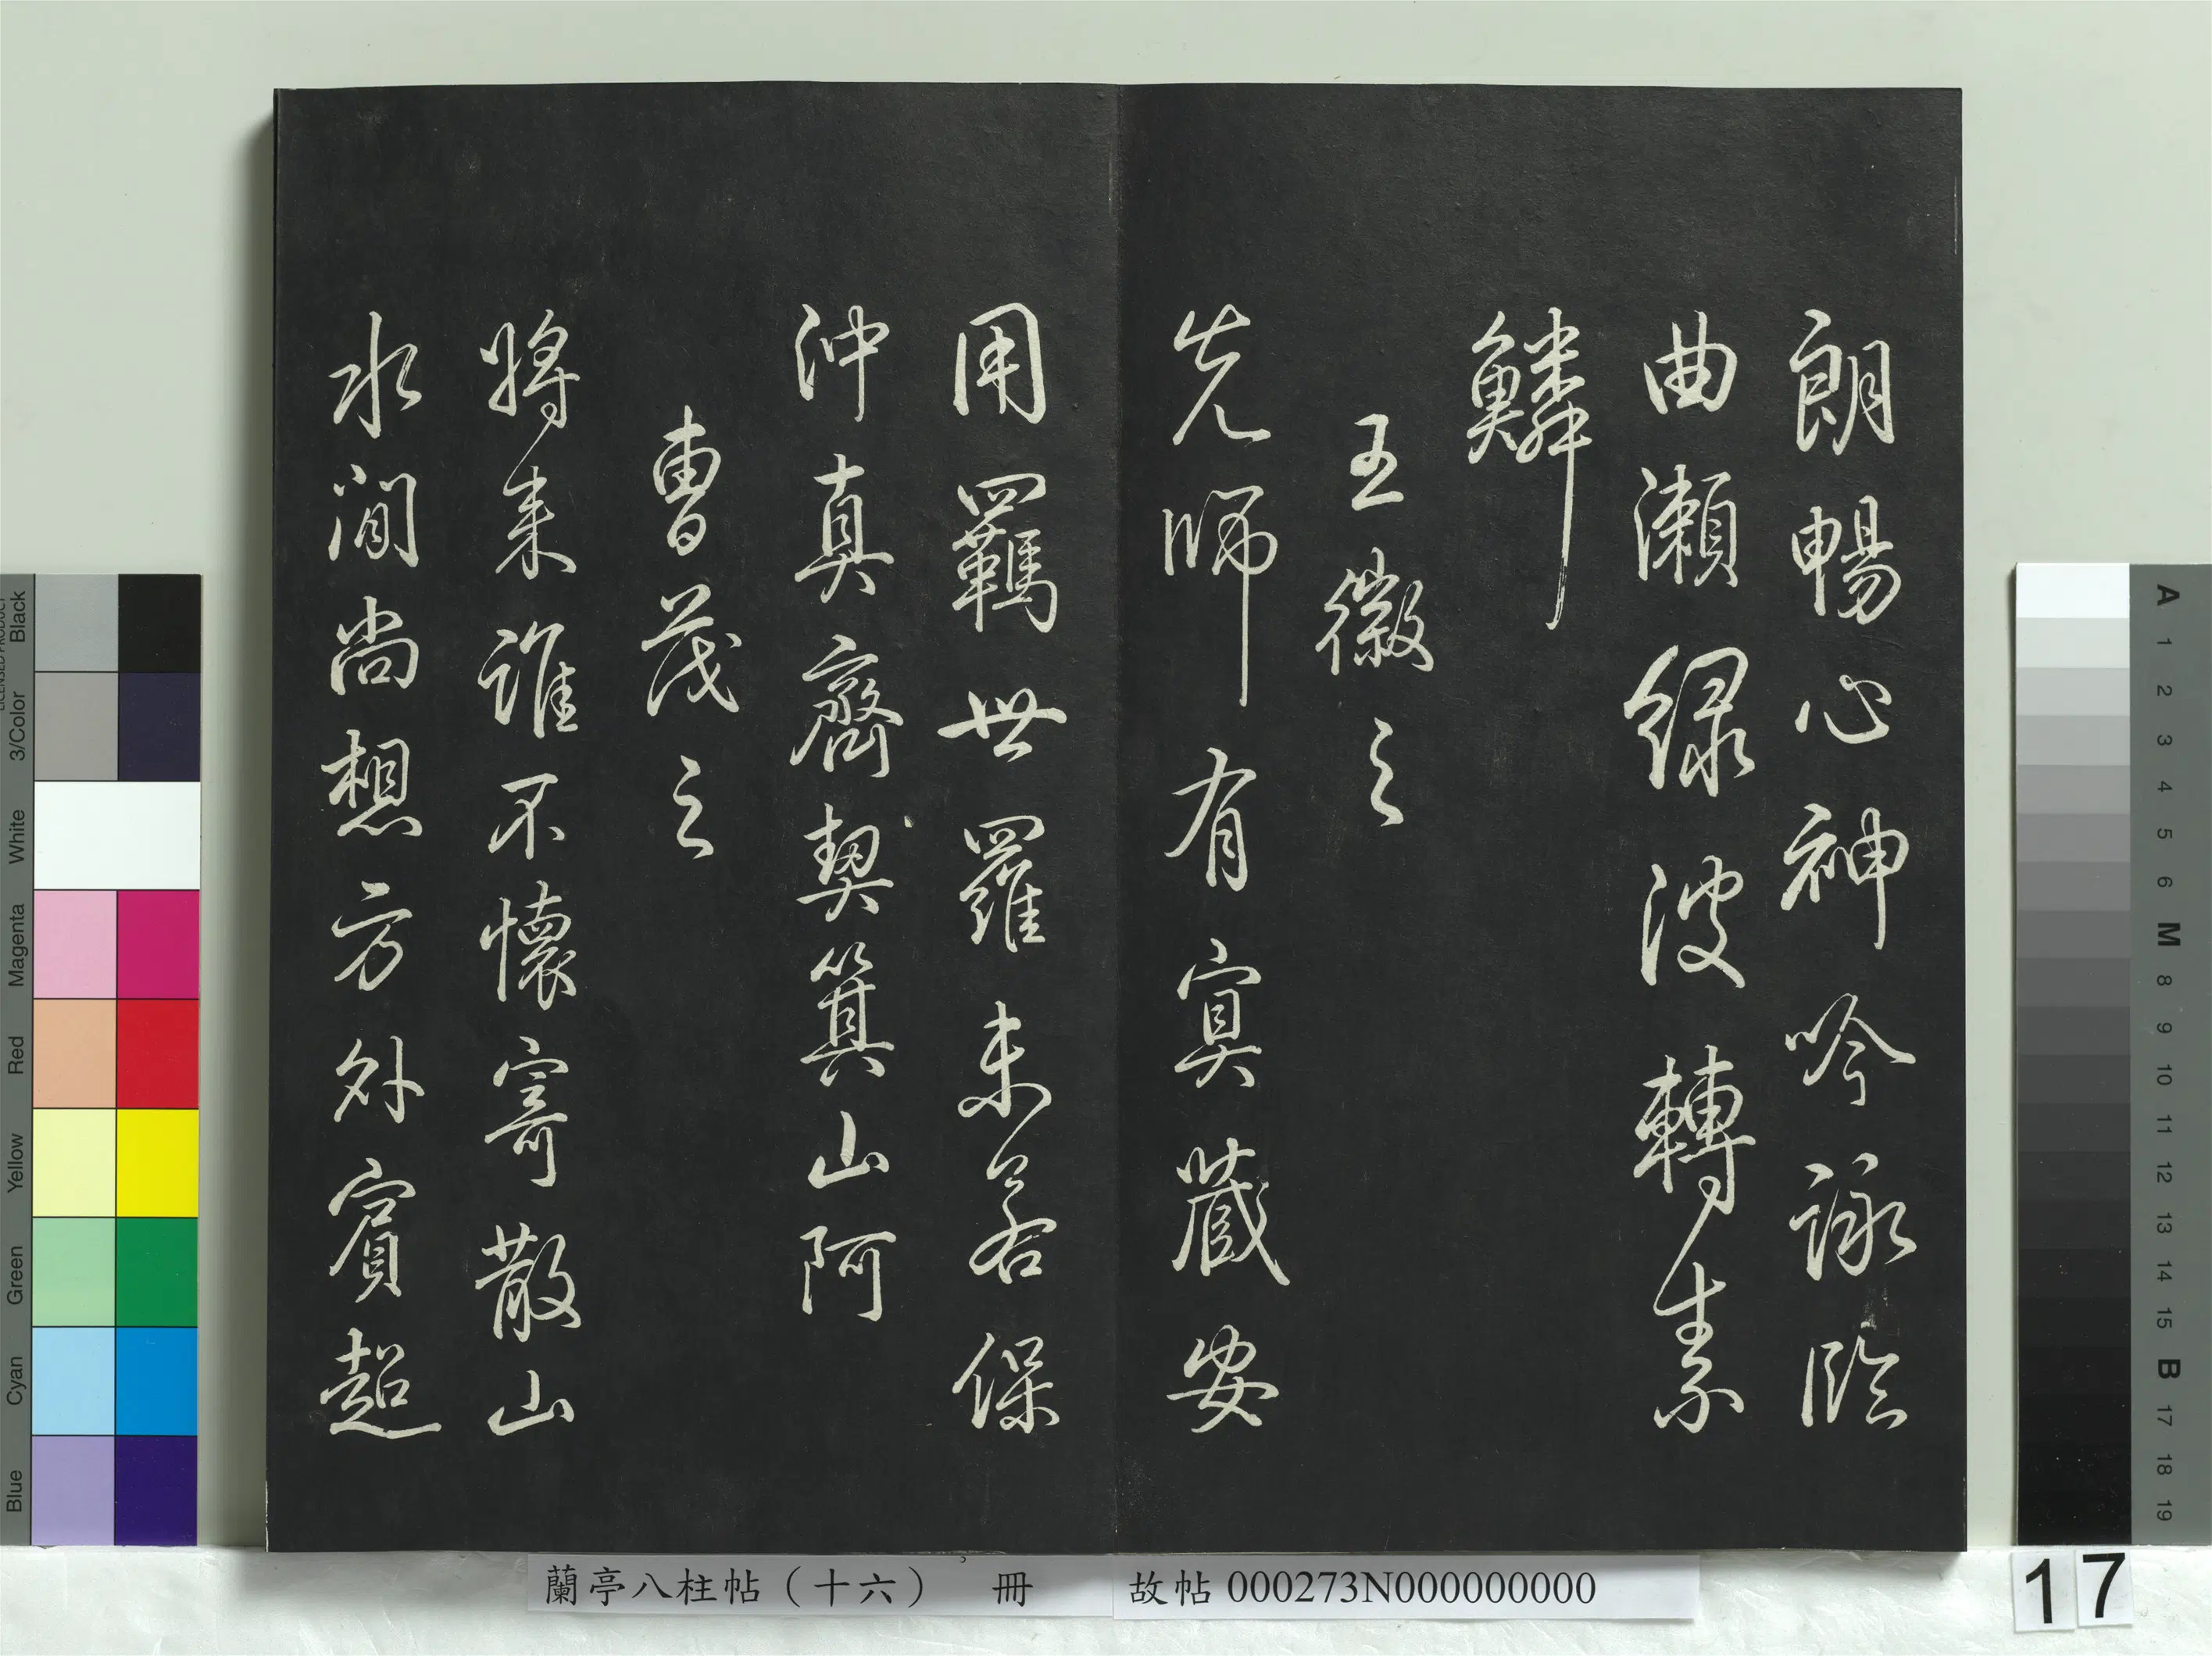 朗暢心神吟詠臨
曲瀬緑波轉素
鱗
王徽之
先師有冥藏安
用羈世羅未若保
沖真齊契箕山阿
曹茂之
時来誰不懷寄散山
水間尚想方外賓超
蘭亭八柱帖（十六） 冊
故帖000273N000000000
17
Black
3/Color
White
Magenta
Red
Yellow
Green
Cyan
Blue
A
1
2
3
4
5
6
M
8
9
10
11
12
13
14
15
B
17
18
19